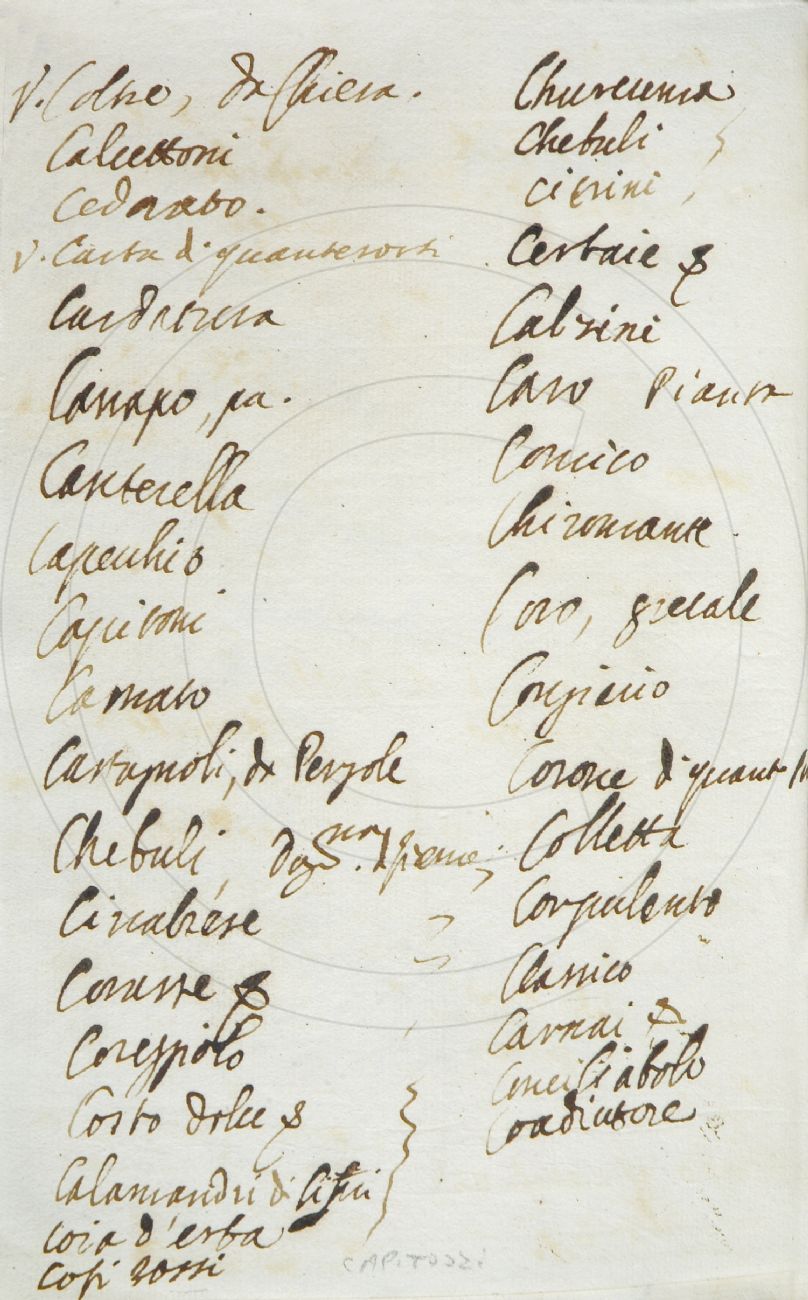 V. Coltre, da Chiesa.
Calcettoni
Cedrato.
V. Carta di quante sorti
Cardatura
Canapo, pa.
Canterella
Capecchio
Capitoni
Camato
Castagnoli, da Pergole
Chebuli
Cinabrese
Corasse
Coreggiolo
Costo dolce
Calamandri di
Coia d'erba
Cosi rossi
Churcuma
Chebuli
Citrini
Cerbaie
Calzini
Caro Pianta
Comico
Chiromante
Coro, grecale
Conginio
Corone di quante
Colletta
Corpulento
Classico
Carnai
Conciliabolo
Coadiutore
CAPITOZZI